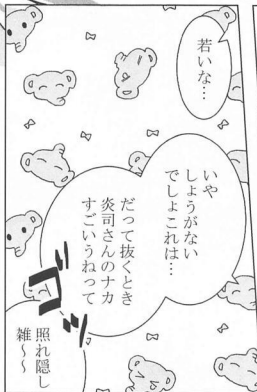 若いな…
いや
しょうがない
でしょこれは…
だって抜くとき
炎司さんのナカ
すごいうねって
照れ隠し
雑～～